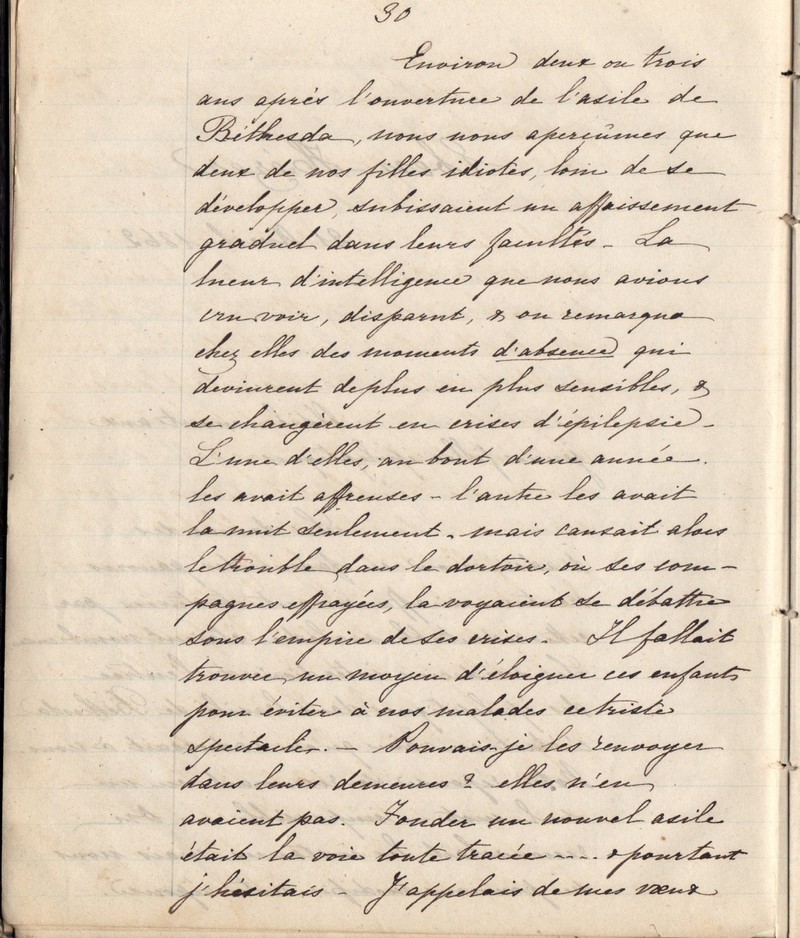 30
Environ deux ou trois
ans après l'ouverture de l'asile de
Béthesda, nous nous aperçûmes que
deux de nos filles idiotes, loin de se
développer, subissaient un affaissement
graduel dans leurs facultés - La
lueur d'intelligence que nous avions
cru voir, disparut, & on remarqua
chez elles des moments d'absence qui
devinrent de plus en plus sensibles, &
se changèrent en crises d'épilepsie -
L'une d'elles, au bout d'une année.
les avait affreuses - l'autre les avait
la nuit seulement - mais causait alors
le trouble dans le dortoir, où ses com-
pagnes effrayées, la voyaient se débattre
sous l'empire de ses crises - Il fallait
trouver un moyen d'éloigner ces enfants
pour éviter à nos malades ce triste
spectacle. - Pouvais-je les renvoyer
dans leurs demeures ? elles n'en
avaient pas. Fonder un nouvel asile
était la voie toute tracée .... & pourtant
j'hésitais - J'appelais de mes vœux